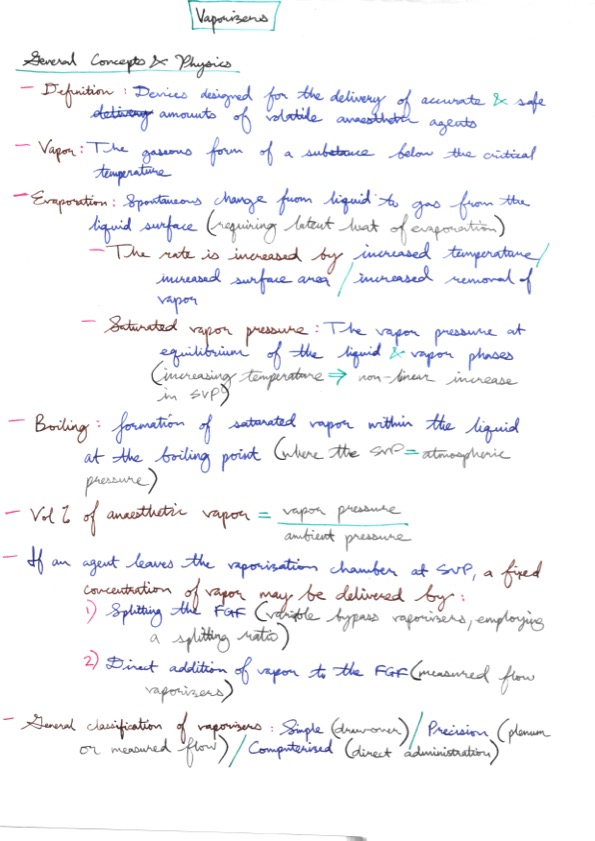 Vaporizers
General Concepts & Physics
- Definition : Devices designed for the delivery of accurate & safe
delivery amounts of volatile anaesthetic agents
- Vapor : The gaseous form of a substance below the critical
temperature
- Evaporation : Spontaneous change from liquid to gas from the
liquid surface (requiring latent heat of evaporation)
- The rate is increased by increased temperature/
increased surface area / increased removal of
vapor
- Saturated vapor pressure : The vapor pressure at
equilibrium of the liquid & vapor phases
(increasing temperature ⇒ non-linear increase
in SVP)
- Boiling : formation of saturated vapor within the liquid
at the boiling point (where the SVP = atmospheric
pressure)
- Vol % of anaesthetic vapor = vapor pressure
ambient pressure
- If an agent leaves the vaporization chamber at SVP, a fixed
concentration of vapor may be delivered by :
1) Splitting the FGF (variable bypass vaporizers, employing
a splitting ratio)
2) Direct addition of vapor to the FGF (measured flow
vaporizers)
- General classification of vaporizers : Simple (drawover) / Precision (plenum
or measured flow) / Computerized (direct administration)